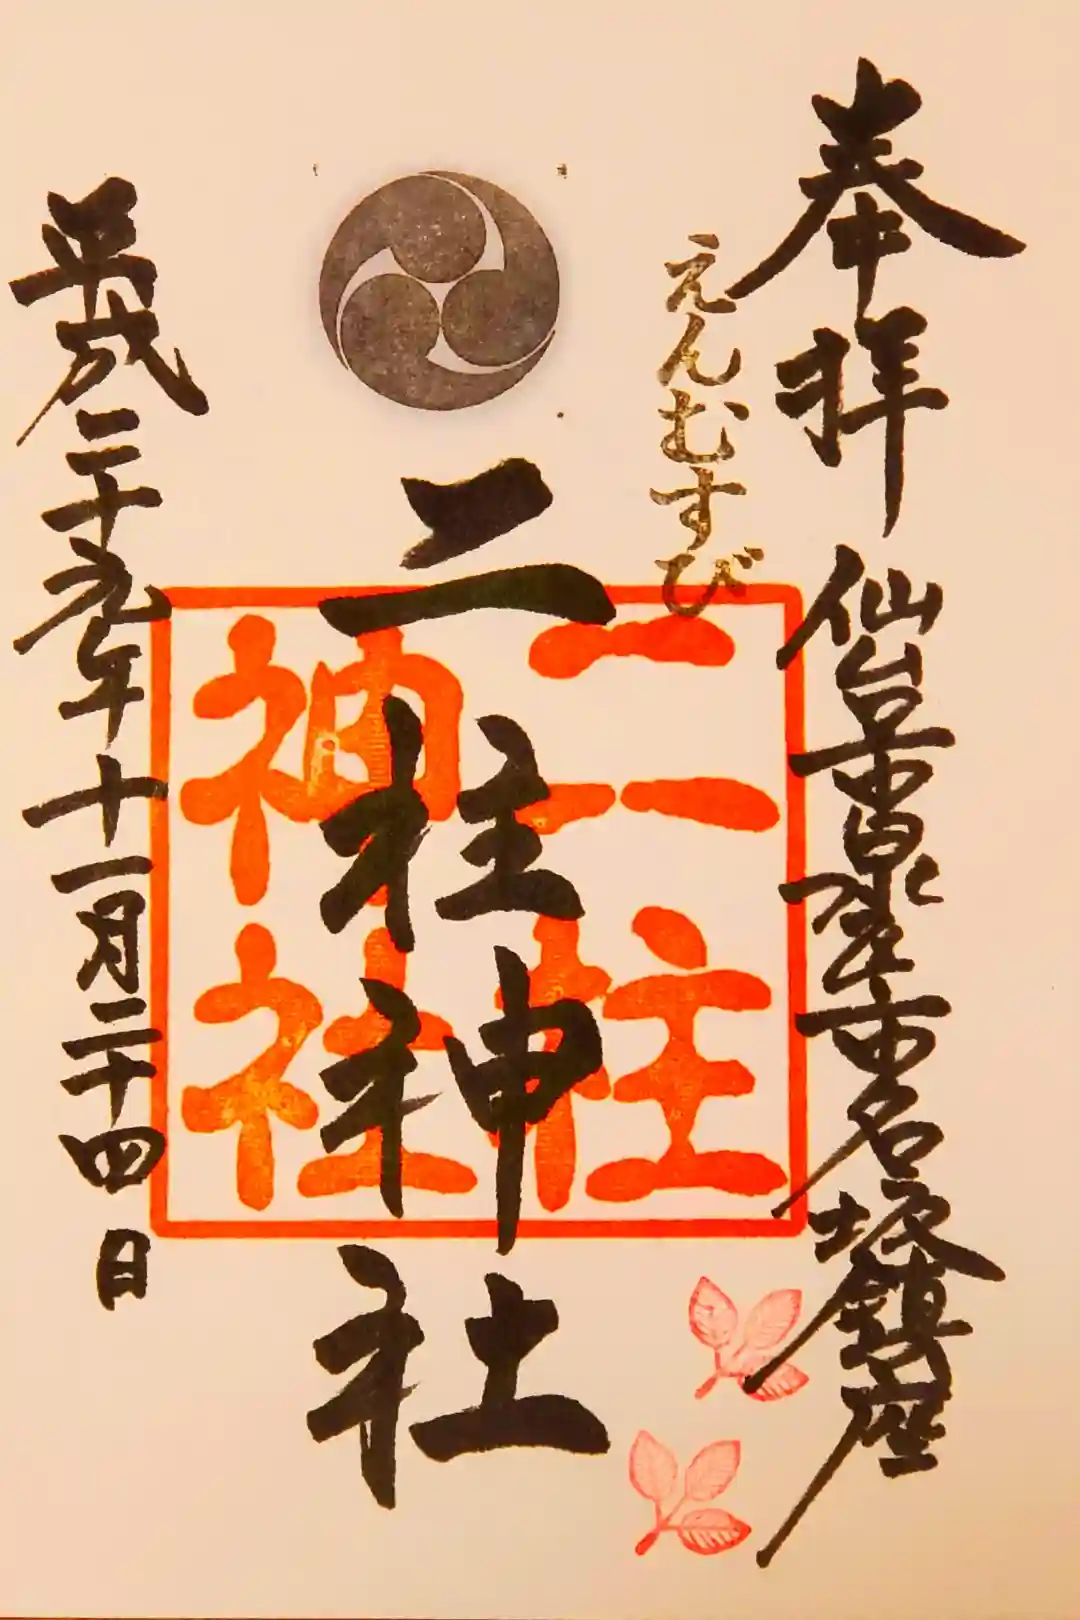 奉拝 仙台市泉区市名坂鎮座
えんむすび
二柱神社
二柱
神社
平成二十九年十一月二十四日